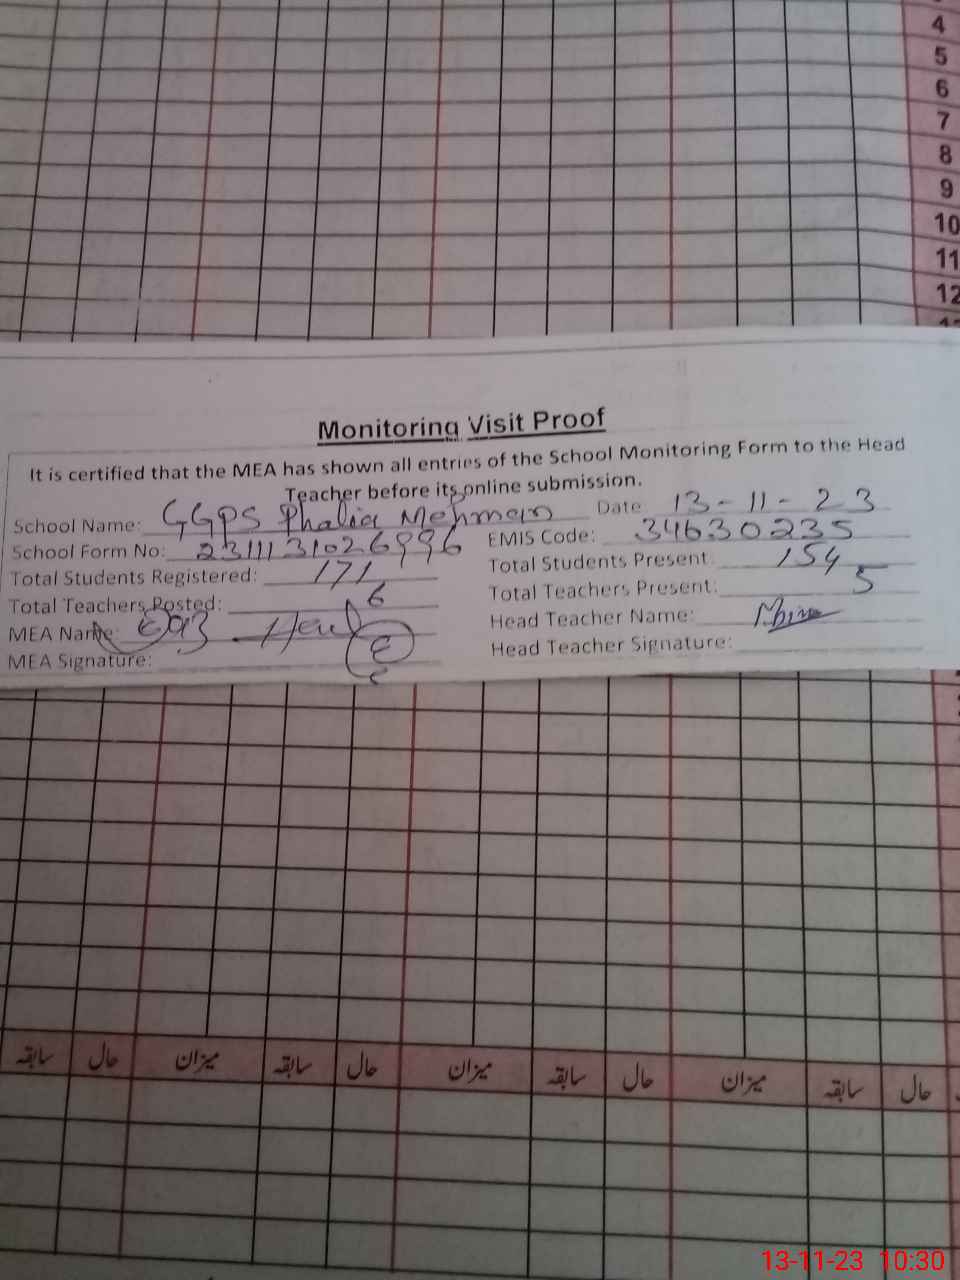 4
5
6
7
8
9
10
11
12
Monitoring Visit Proof
It is certified that the MEA has shown all entries of the School Monitoring Form to the Head
Teacher before its online submission.
School Name: GGPS Phalia Mehman Date: 13-11-23
School Form No: 2311131026996 EMIS Code: 34630235
Total Students Registered: 171 Total Students Present: 154
Total Teachers Posted: 6 Total Teachers Present: 5
MEA Name: Head Teacher Name:
MEA Signature: Head Teacher Signature:
سابقہ حال میزان سابقہ حال میزان سابقہ حال میزان سابقہ حال
13-11-23 10:30